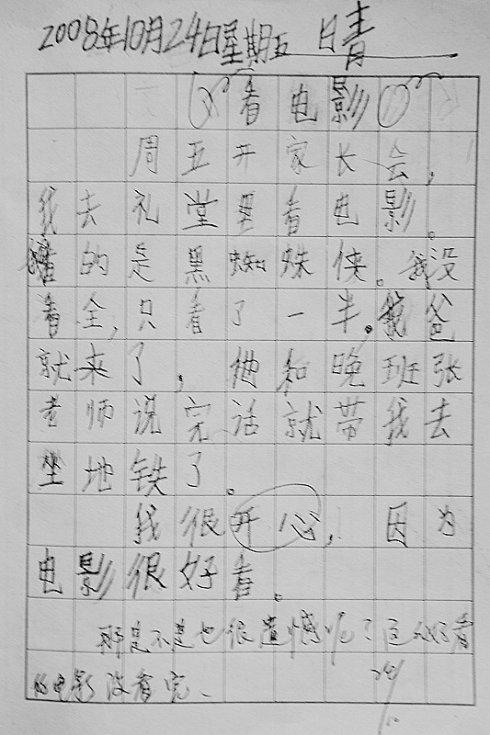 2008年10月24日星期五 晴
看电影
周五开家长会,
我去礼堂里看电影。
的是黑蜘蛛侠。我没
看全,只看了一半。我爸
就来了,他和晚班张
老师说完话就带我去
坐地铁了。
我很开心,因为
电影很好看。
那是不是也很遗憾呢?这么好看
的电影没看完、